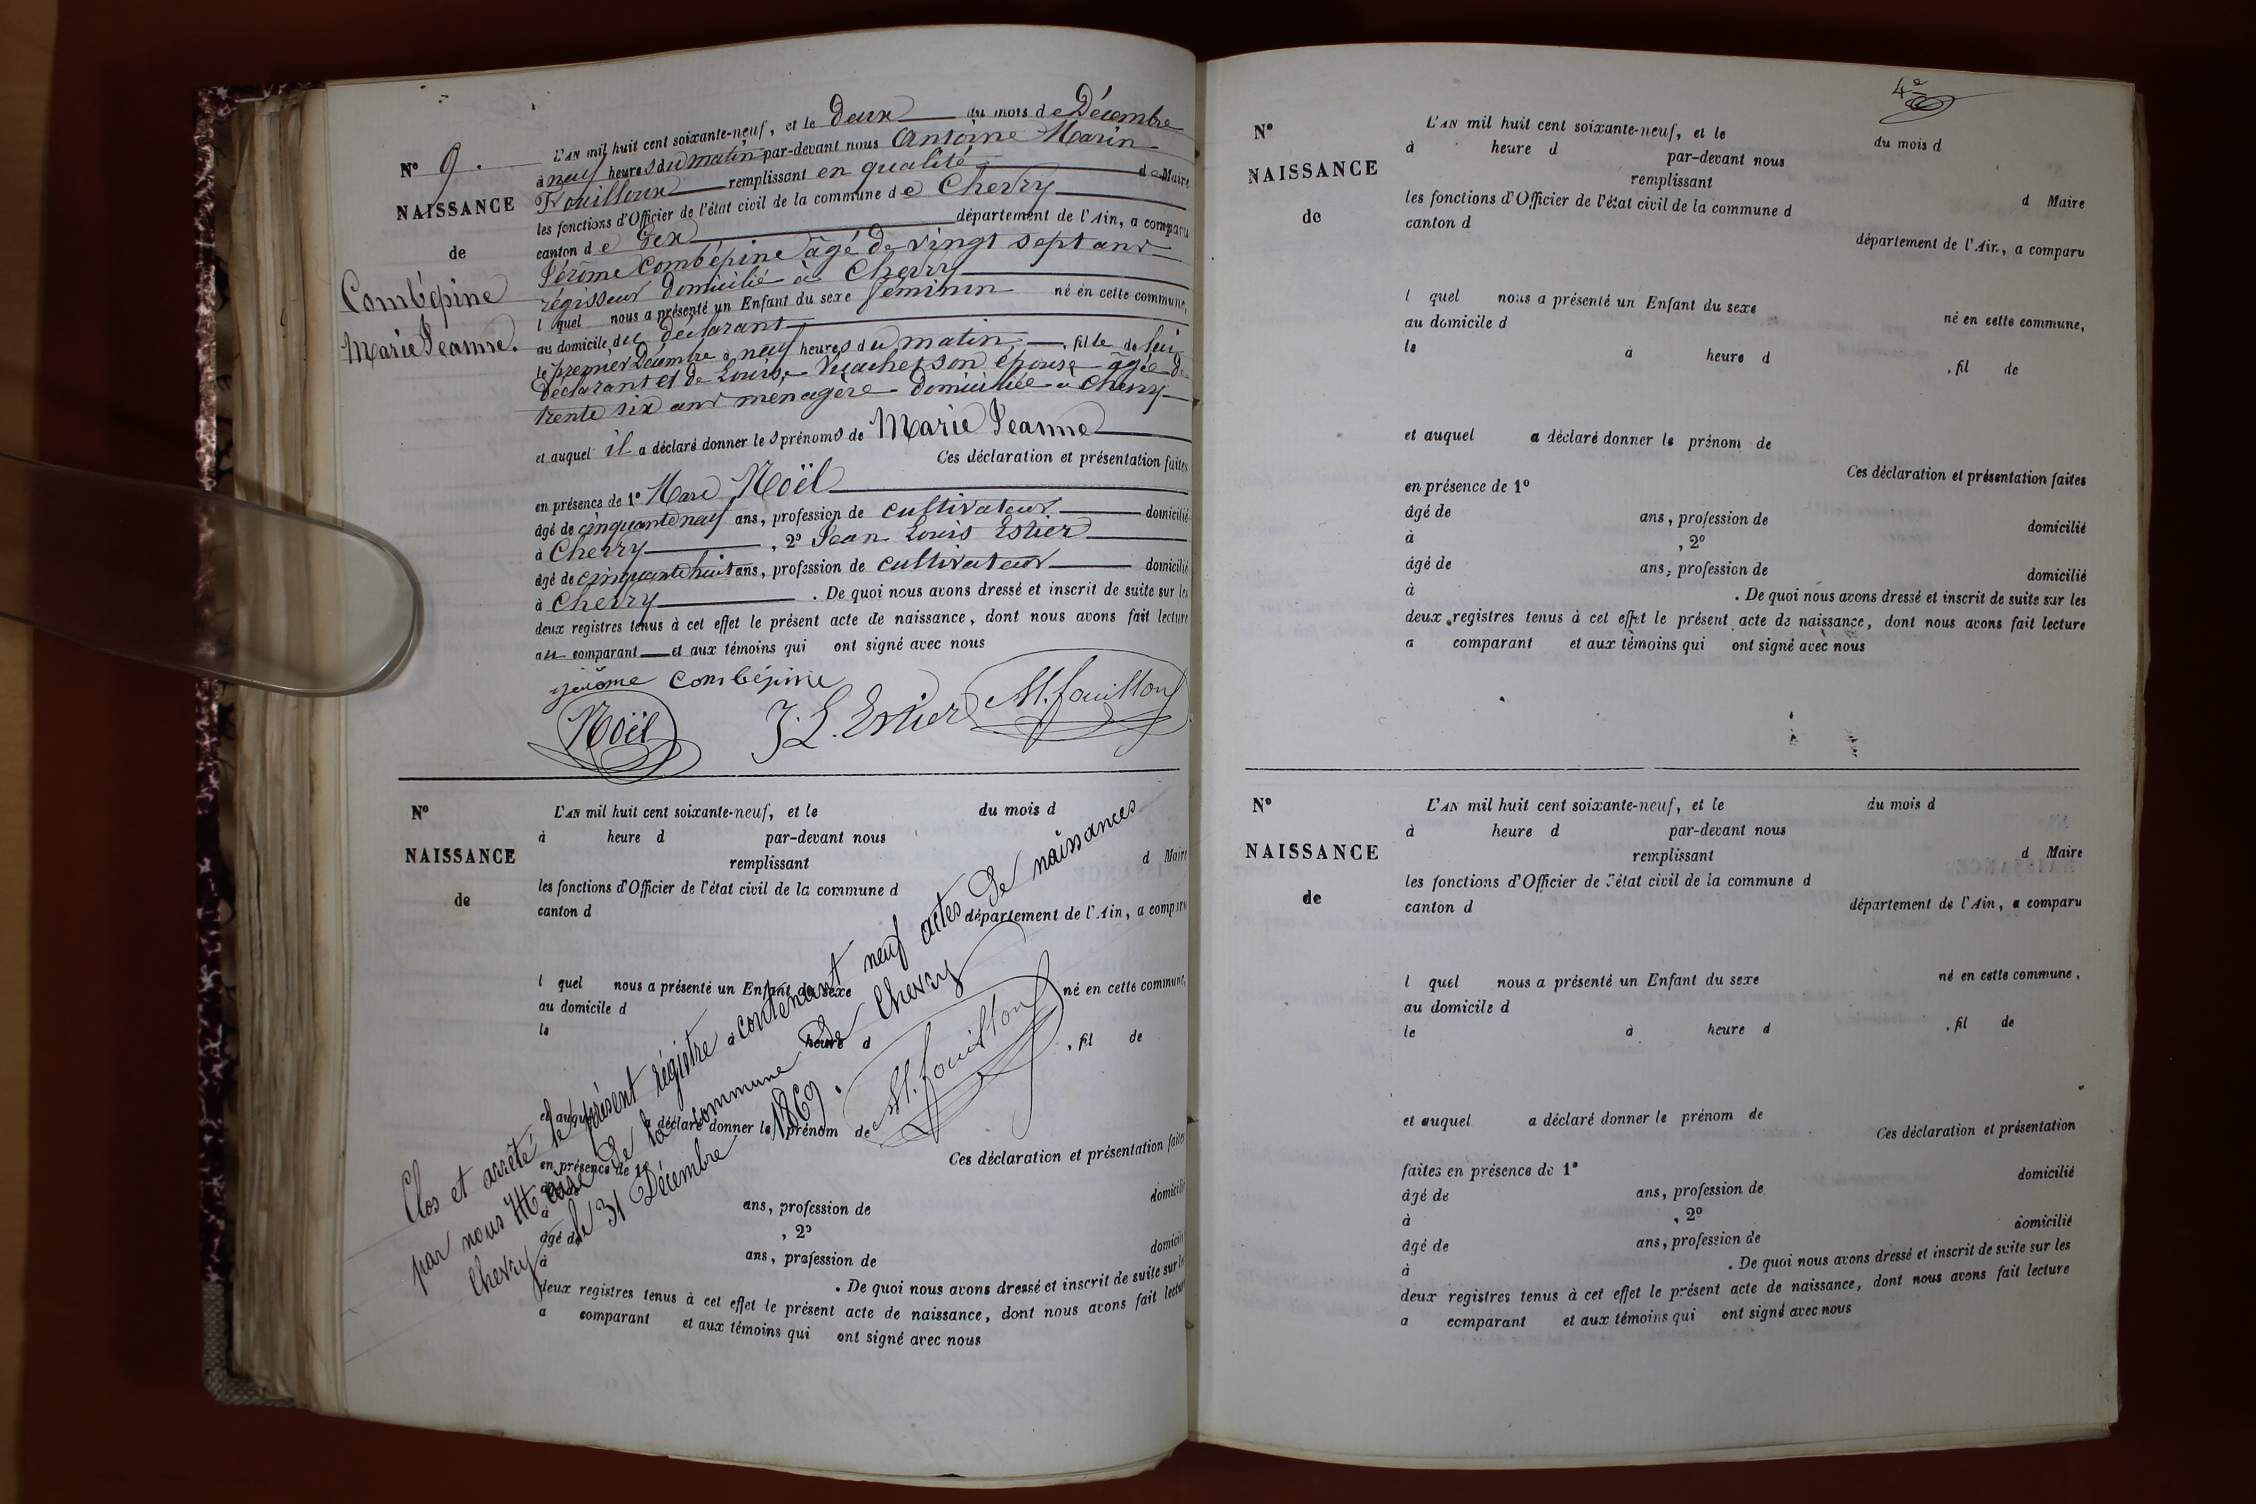 N° 9.
NAISSANCE
de
Combépine
Marie Jeanne.
L'AN mil huit cent soixante-neuf, et le deux du mois de Décembre
à neuf heures du matin par-devant nous Antoine Marin
Fouilloux remplissant en qualité de Maire
les fonctions d'Officier de l'état civil de la commune de Chevry
canton de Gex département de l'Ain, a comparu
Jérôme Combépine âgé de vingt sept ans
régisseur domicilié à Chevry
l quel nous a présenté un Enfant du sexe féminin né en cette commune,
au domicile du déclarant
le premier Décembre à neuf heures du matin, fille de lui
Déclarant et de Louise son épouse âgée de
trente six ans ménagère domiciliée à Chevry
et auquel il a déclaré donner les prénoms de Marie Jeanne
Ces déclaration et présentation faites
en présence de 1° Marc Noël
âgé de cinquante neuf ans, profession de cultivateur domicilié
à Chevry, 2° Jean Louis Estier
âgé de cinquante huit ans, profession de cultivateur domicilié
à Chevry. De quoi nous avons dressé et inscrit de suite sur les
deux registres tenus à cet effet le présent acte de naissance, dont nous avons fait lecture
au comparant et aux témoins qui ont signé avec nous
jérôme Combépine
Noël J. L. Estier M. fouilloux
N°
NAISSANCE
de
L'AN mil huit cent soixante-neuf, et le du mois d
à heure d par-devant nous
remplissant d Maire
les fonctions d'Officier de l'état civil de la commune d
canton d département de l'Ain, a comparu
l quel nous a présenté un Enfant du sexe né en cette commune,
au domicile d
le à heure d , fil de
et auquel a déclaré donner le prénom de
Ces déclaration et présentation faites
en présence de 1°
âgé de ans, profession de domicilié
à , 2°
âgé de ans, profession de domicilié
à . De quoi nous avons dressé et inscrit de suite sur les
deux registres tenus à cet effet le présent acte de naissance, dont nous avons fait lecture
a comparant et aux témoins qui ont signé avec nous
Clos et arrêté le présent régistre contenant neuf actes de naissances
par nous Maire de la commune de Chevry
Chevry le 31 Décembre 1869.
M. fouilloux
4e
N°
NAISSANCE
de
L'AN mil huit cent soixante-neuf, et le du mois d
à heure d par-devant nous
remplissant d Maire
les fonctions d'Officier de l'état civil de la commune d
canton d département de l'Ain, a comparu
l quel nous a présenté un Enfant du sexe né en cette commune,
au domicile d
le à heure d , fil de
et auquel a déclaré donner le prénom de
Ces déclaration et présentation faites
en présence de 1°
âgé de ans, profession de domicilié
à , 2°
âgé de ans, profession de domicilié
à . De quoi nous avons dressé et inscrit de suite sur les
deux registres tenus à cet effet le présent acte de naissance, dont nous avons fait lecture
a comparant et aux témoins qui ont signé avec nous
N°
NAISSANCE
de
L'AN mil huit cent soixante-neuf, et le du mois d
à heure d par-devant nous
remplissant d Maire
les fonctions d'Officier de l'état civil de la commune d
canton d département de l'Ain, a comparu
l quel nous a présenté un Enfant du sexe né en cette commune,
au domicile d
le à heure d , fil de
et auquel a déclaré donner le prénom de
Ces déclaration et présentation
faites en présence de 1° domicilié
âgé de ans, profession de
à , 2° domicilié
âgé de ans, profession de
à . De quoi nous avons dressé et inscrit de suite sur les
deux registres tenus à cet effet le présent acte de naissance, dont nous avons fait lecture
a comparant et aux témoins qui ont signé avec nous